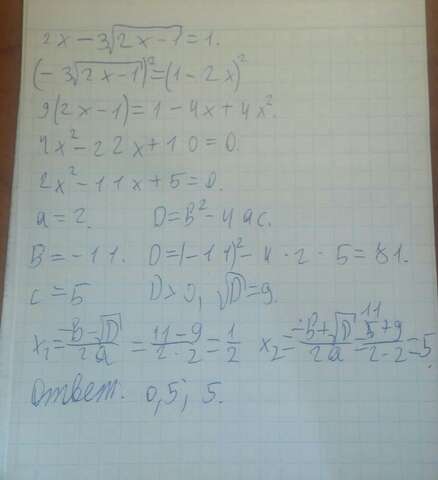 2x - 3√(2x-1) = 1.
(-3√(2x-1))² = (1-2x)²
9(2x-1) = 1 - 4x + 4x².
4x² - 22x + 10 = 0.
2x² - 11x + 5 = 0.
a = 2. D = B² - 4ac.
B = -11. D = (-11)² - 4·2·5 = 81.
c = 5 D > 0, √D = 9.
x₁ = (-B-√D)/2a = (11-9)/(2·2) = 1/2 x₂ = (-B+√D)/2a = (11+9)/(2·2) = 5.
Ответ. 0,5; 5.